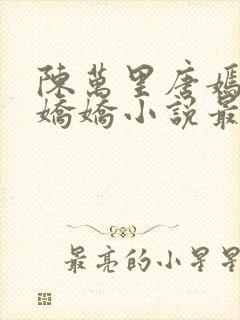 陳萬里唐嫣
嬌嬌小説最
最亮的小星星